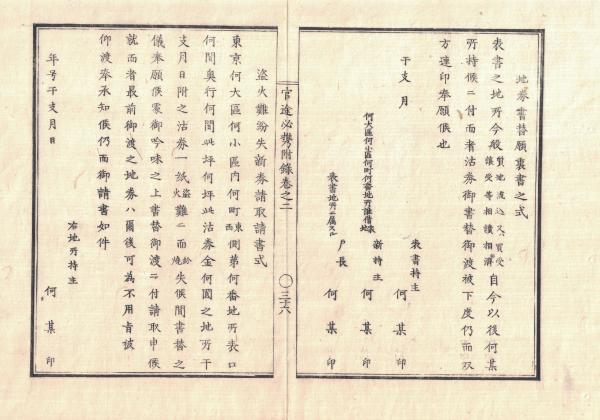 地券書替願裏書之式
表書之地所今般質地流込又ハ買受
譲受等相續相濟自今以後何某
所持候ニ付而者沽券御書替御渡被下度仍而双
方連印奉願候也
干支月
表書持主
何某印
何大區何小區何町何番地所誰借地
新持主
何某印
表書地所ニ属スル
戸長
何某印
官途必携附録卷之二
〇三十六
盗火難紛失新券請取請書式
東京何大區何小區内何町東西側第何番地所表口
何間奥行何間此坪何坪此沽券金何圓之地所干
支月日附之沽券一紙盗火難ニ而紛焼失候間書替之
儀奉願候處御吟味之上書替御渡ニ付請取申候
就而者最前御渡之地券ハ爾後可為不用旨被
仰渡奉承知候仍而御請書如件
年号干支月日
右地所持主
何某印